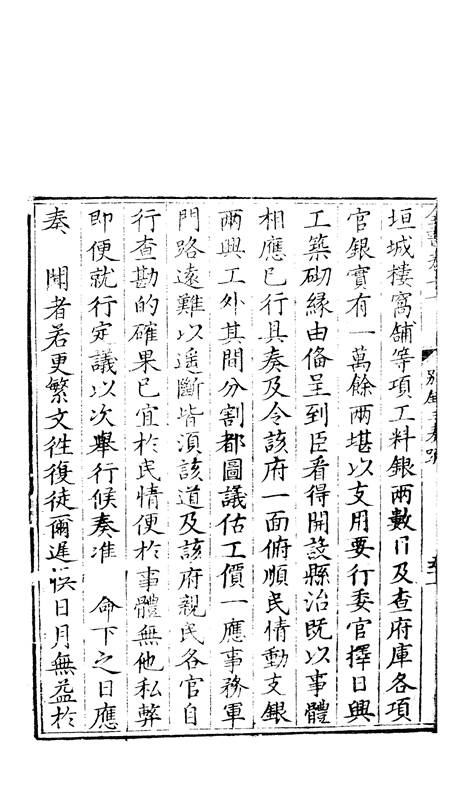 垣城樓窩舖等項工料銀兩數目及查府庫各項
官銀實有一萬餘兩堪以支用要行委官擇日興
工築砌緣由俻呈到臣看得開設縣治既以事體
相應已行具奏及令該府一面俯順民情動支銀
兩興工外其間分割都圖議估工價一應事務軍
門路遠難以遥斷皆湏該道及該府親民各官自
行查勘的確果已宜於民情便於事體無他私弊
即便就行定議以次舉行候奏准 命下之日應
奏 聞者若更繁文徃復徒爾遲悞日月無益於